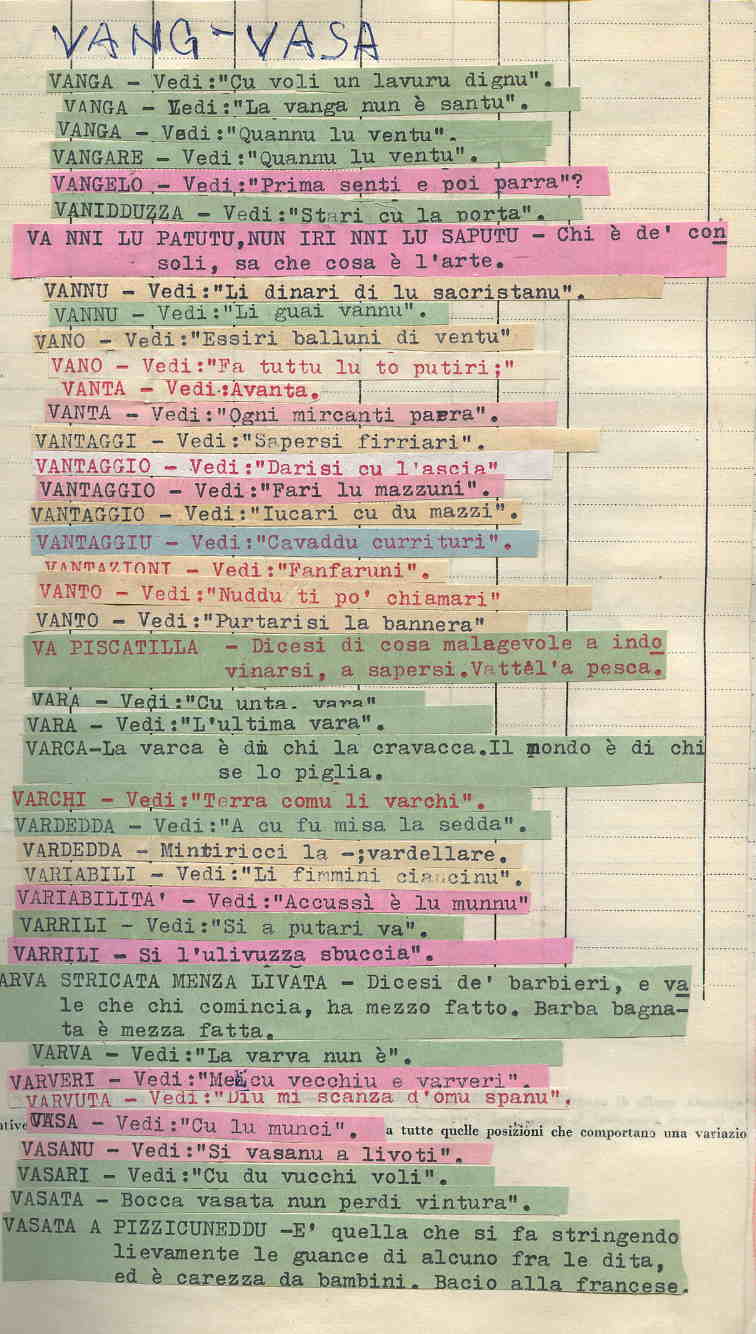 VANG-VASA
VANGA - Vedi:"Cu voli un lavuru dignu".
VANGA - Vedi:"La vanga nun è santu".
VANGA - Vedi:"Quannu lu ventu".
VANGARE - Vedi:"Quannu lu ventu".
VANGELO - Vedi:"Prima senti e poi parra"?
VANIDDUZZA - Vedi:"Stari cu la porta".
VA NNI LU PATUTU,NUN IRI NNI LU SAPUTU - Chi è de' con
soli, sa che cosa è l'arte.
VANNU - Vedi:"Li dinari di lu sacristanu".
VANNU - Vedi:"Li guai vannu".
VANO - Vedi:"Essiri balluni di ventu"
VANO - Vedi:"Fa tuttu lu to putiri;"
VANTA - Vedi:Avanta.
VANTA - Vedi:"Ogni mircanti parra".
VANTAGGI - Vedi:"Sapersi firriari".
VANTAGGIO - Vedi:"Darisi cu l'ascia"
VANTAGGIO - Vedi:"Fari lu mazzuni".
VANTAGGIO - Vedi:"Iucari cu du mazzi".
VANTAGGIU - Vedi:"Cavaddu currituri".
VANTAZIONI - Vedi:"Fanfaruni".
VANTO - Vedi:"Nuddu ti po' chiamari"
VANTO - Vedi:"Purtarisi la bannera"
VA PISCATILLA - Dicesi di cosa malagevole a indo
vinarsi, a sapersi.Vattél'a pesca.
VARA - Vedi:"Cu unta. vara"
VARA - Vedi:"L'ultima vara".
VARCA-La varca è di chi la cravacca.Il mondo è di chi
se lo piglia.
VARCHI - Vedi:"Terra comu li varchi".
VARDEDDA - Vedi:"A cu fu misa la sedda".
VARDEDDA - Mintiricci la -;vardellare.
VARIABILI - Vedi:"Li fimmini ciancinu".
VARIABILITA' - Vedi:"Accussì è lu munnu"
VARRILI - Vedi:"Si a putari va".
VARRILI - Si l'ulivuzza sbuccia".
ARVA STRICATA MENZA LIVATA - Dicesi de' barbieri, e va
le che chi comincia, ha mezzo fatto. Barba bagna-
ta è mezza fatta.
VARVA - Vedi:"La varva nun è".
VARVERI - Vedi:"Medicu vecchiu e varveri".
VARVUTA - Vedi:"Diu mi scanza d'omu spanu".
ative VASA - Vedi:"Cu lu munci". a tutte quelle posizioni che comportano una variazio
VASANU - Vedi:"Si vasanu a livoti".
VASARI - Vedi:"Cu du vucchi voli".
VASATA - Bocca vasata nun perdi vintura".
VASATA A PIZZICUNEDDU -E' quella che si fa stringendo
lievamente le guance di alcuno fra le dita,
ed è carezza da bambini. Bacio alla francese.